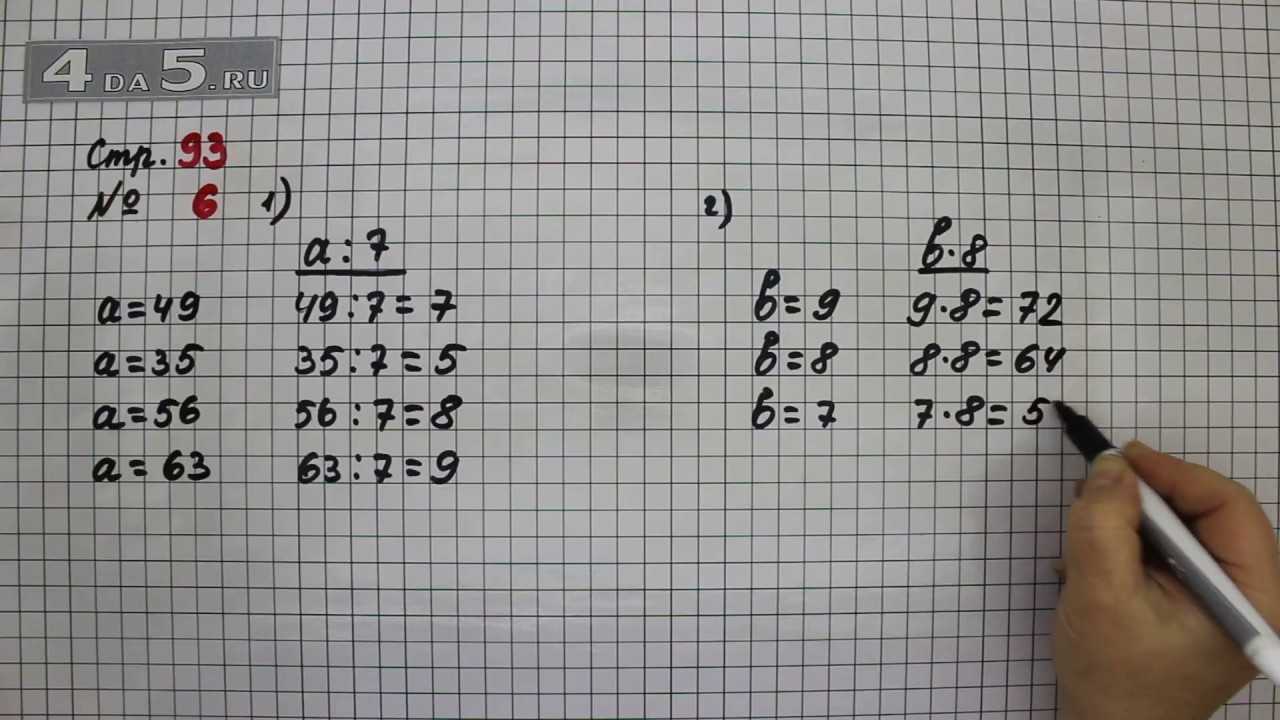 4DA5.RU
Стр. 93
№ 6 1)
a : 7
a = 49 49 : 7 = 7
a = 35 35 : 7 = 5
a = 56 56 : 7 = 8
a = 63 63 : 7 = 9
2)
b · 8
b = 9 9 · 8 = 72
b = 8 8 · 8 = 64
b = 7 7 · 8 = 5